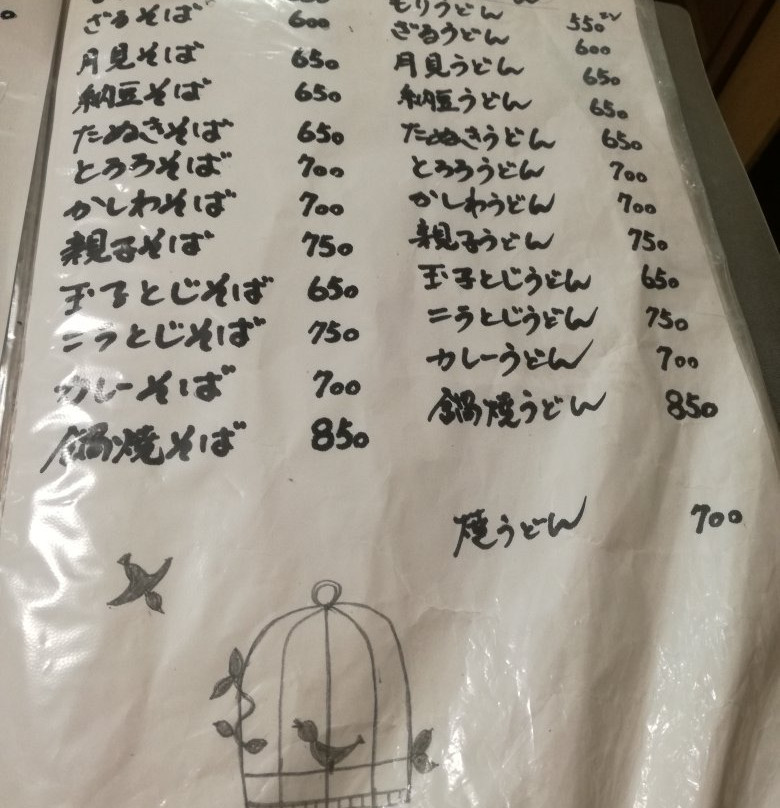 ざるそば 600
月見そば 650
納豆そば 650
たぬきそば 650
とろろそば 700
かしわそば 700
親子そば 750
玉子とじそば 650
ニラとじそば 750
カレーそば 700
鍋焼そば 850
もりうどん 550
ざるうどん 600
月見うどん 650
納豆うどん 650
たぬきうどん 650
とろろうどん 700
かしわうどん 700
親子うどん 750
玉子とじうどん 650
ニラとじうどん 750
カレーうどん 700
鍋焼うどん 850
焼うどん 700